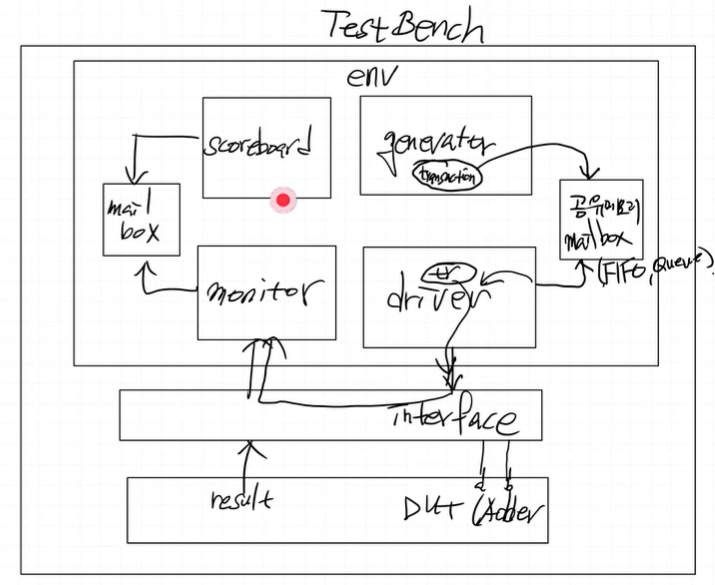 TestBench
env
scoreboard
generator
transaction
mail
box
공유메모리
mailbox
(FIFO, Queue)
monitor
tr
driver
interface
result
a
b
DUT (Adder